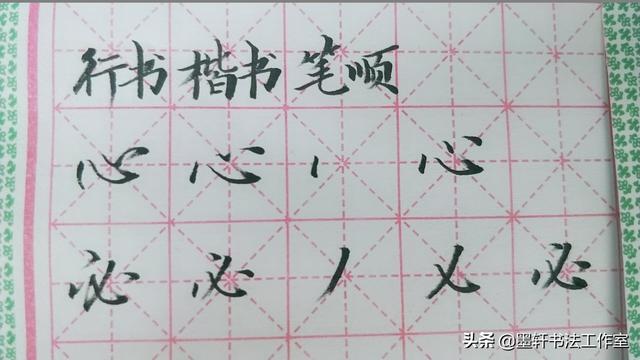 行书楷书笔顺
心 心 丶 心
必 必 丿 乂 必
头条 @墨轩书法工作室